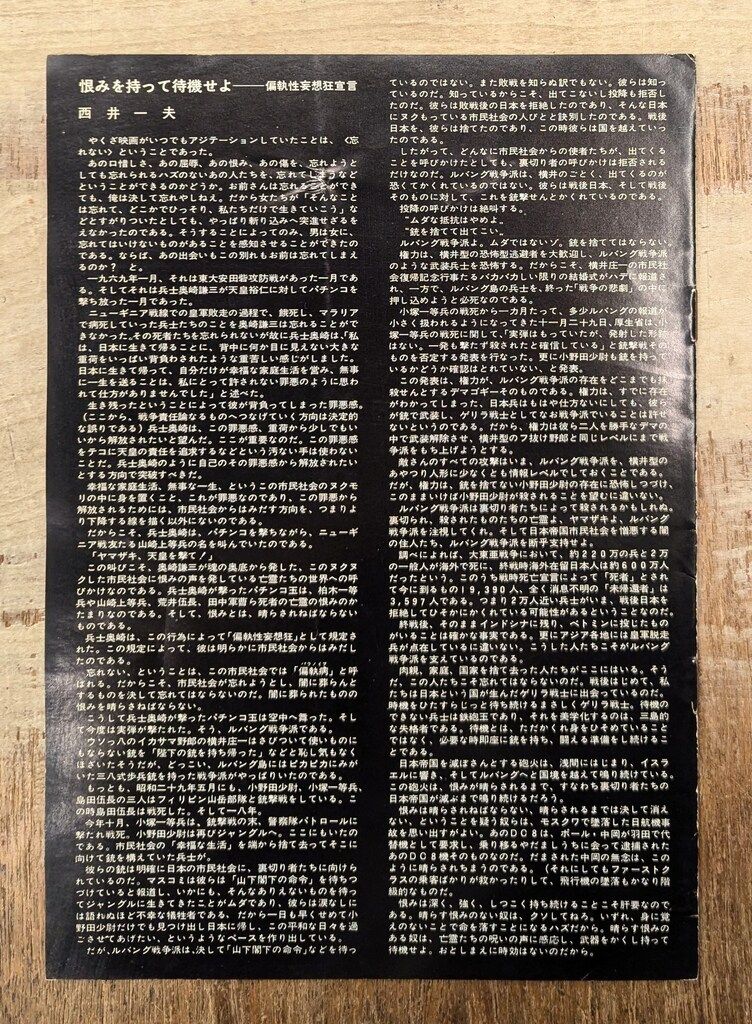 恨みを持って待機せよ——偏執性妄想狂宣言
西井一夫
やくざ映画がいつでもアジテーションしていたことは、〈忘
れない〉ということであった。
あの口惜しさ、あの屈辱、あの恨み、あの傷を、忘れようと
しても忘れられるハズのないあの人たちを、忘れてしまうなど
ということができるのかどうか。お前さんは忘れることができ
ても、俺は決して忘れやしねえ。だから女たちが「そんなこと
は忘れて、どこかでひっそり、私たちだけで生きていこう」な
どとすがりついたとしても、やっぱり斬り込みへ突進せざるを
えなかったのである。そうすることによってのみ、男は女に、
忘れてはいけないものがあることを感知させることができたの
である。ならば、あの出会いもこの別れもお前は忘れてしまえ
るのか? と。
一九六九年一月、それは東大安田砦攻防戦があった一月であ
る。そしてそれは兵士奥崎謙三が天皇裕仁に対してパチンコを
撃ち放った一月であった。
ニューギニア戦線での皇軍敗走の過程で、餓死し、マラリア
で病死していった兵士たちのことを奥崎謙三は忘れることがで
きなかった。その死者たちを忘れられないが故に兵士奥崎は、「私
は、日本に生きて帰ることに、背中に何か目に見えない大きな
重荷をいっぱい背負わされたような重苦しい感じがしました。
日本に生きて帰って、自分だけが幸福な家庭生活を営み、無事
に一生を送ることは、私にとって許されない罪悪のように思わ
れて仕方がありませんでした」と述べた。
生き残ったということによって彼が背負ってしまった罪悪感、
(ここから、戦争責任論なるものへつなげていく方向は決定的
な誤りである)兵士奥崎は、この罪悪感、重荷から少しでもい
いから解放されたいと望んだ。ここが重要なのだ。この罪悪感
をテコに天皇の責任を追求するなどという汚ない手は使わない
ことだ。兵士奥崎のように自己のその罪悪感から解放されたい
とする方向で突破すべきだ。
幸福な家庭生活、無事な一生、というこの市民社会のヌクモ
リの中に身を置くこと、これが罪悪なのであり、この罪悪から
解放されるためには、市民社会からはみだす方向を、つまりよ
り下降する線を描く以外にないのである。
だからこそ、兵士奥崎は、パチンコを撃ちながら、ニューギ
ニア戦友たる山崎上等兵の名を叫んでいたのである。
「ヤマザキ、天皇を撃て!」
この叫びこそ、奥崎謙三が魂の奥底から発した、このヌクヌ
クした市民社会に恨みの声を発している亡霊たちの世界への呼
びかけなのである。兵士奥崎が撃ったパチンコ玉は、柏木一等
兵や山崎上等兵、荒井伍長、田中軍曹ら死者の亡霊の恨みのか
たまりなのである。そして、恨みとは、晴らされねばならない
ものである。
兵士奥崎は、この行為によって「偏執性妄想狂」として規定さ
れた。この規定によって、彼は明らかに市民社会からはみだし
たのである。
忘れない、ということは、この市民社会では「偏執病」と呼
ばれる。だからこそ、市民社会が忘れようとし、闇に葬らんと
するものを決して忘れてはならないのだ。闇に葬られたものの
恨みを晴らさねばならない。
こうして兵士奥崎が撃ったパチンコ玉は空中へ舞った。そし
て今度は実弾が撃たれた。そう、ルバング戦争派である。
ウソッ八のイカサマ野郎の横井庄一はさびついて使いものに
もならない銃を「陛下の銃を持ち帰った」などと恥し気もなく
ほざいたそうだが、どっこい、ルバング島にはピカピカにみが
いた三八式歩兵銃を持った戦争派がやっぱりいたのである。
もっとも、昭和二十九年五月にも、小野田少尉、小塚一等兵、
島田伍長の三人はフィリピン山岳部隊と銃撃戦をしている。こ
の時島田伍長は戦死した。そして一八年。
今年十月、小塚一等兵は、銃撃戦の末、警察隊パトロールに
撃たれ戦死。小野田少尉は再びジャングルへ。ここにもいたの
である。市民社会の「幸福な生活」を端から捨て去ってそこに
向けて銃を構えていた兵士が。
彼らの銃は明確に日本の市民社会に、裏切り者たちに向けら
れているのだ。マスコミは彼らは「山下閣下の命令」を待ちつ
づけていると報道し、いかにも、そんなありえないものを待っ
てジャングルに生きてきたことがムダであり、彼らは涙なしに
は語れぬほど不幸な犠牲者である、だから一日も早くせめて小
野田少尉だけでも見つけ出し日本に帰し、この平和な日々を過
ごさせてあげたい、というようなペースを作り出している。
だが、ルバング戦争派は、決して「山下閣下の命令」などを待っ
ているのではない。また敗戦を知らぬ訳でもない。彼らは知っ
ているのだ。知っているからこそ、出てこないし投降も拒否し
たのだ。彼らは敗戦後の日本を拒絶したのであり、そんな日本
にヌクもっている市民社会の人びとと訣別したのである。戦後
日本を、彼らは捨てたのであり、この時彼らは国を越えていっ
たのである。
したがって、どんなに市民社会からの使者たちが、出てくる
ことを呼びかけたとしても、裏切り者の呼びかけは拒否される
だけなのだ。ルバング戦争派は、横井のごとく、出てくるのが
恐くてかくれているのではない。彼らは戦後日本、そして戦後
そのものに対して、これを銃撃せんとかくれているのである。
投降の呼びかけは絶叫する。
“ムダな抵抗はやめよ
“銃を捨てて出てこい。
ルバング戦争派よ。ムダではないゾ。銃を捨ててはならない。
権力は、横井型の恐怖型逃避者を大歓迎し、ルバング戦争派
のような武装兵士を恐怖する。だからこそ、横井庄一の市民社
会復帰記念行事たるバカバカしい限りの結婚式がハデに報道さ
れ、一方で、ルバング島の兵士を、終った「戦争の悲劇」の中に
押し込めようと必死なのである。
小塚一等兵の戦死から一カ月たって、多少ルバングの報道が
小さく扱われるようになってきた十一月二十九日、厚生省は、小
塚一等兵の戦死に関して、「実弾はもっていたが、発射した形跡
はない。一発も撃たず殺されたと確信している」と銃撃戦その
ものを否定する発表を行なった。更に小野田少尉も銃を持って
いるかどうか確認はとれていない、と発表。
この発表は、権力が、ルバング戦争派の存在をどこまでも抹
殺せんとするデマゴギーそのものである。権力は、すでに存在
がわかってしまった、日本兵はもはや仕方ないにしても、彼ら
が銃で武装し、ゲリラ戦士としてなお存在していることは許せ
ないというのである。だから、権力は彼ら二人を勝手なデマの
中で武装解除させ、横井型のフ抜け野郎と同じレベルにまで戦
争派をもち上げようとする。
敵さんのすべての攻撃はいま、ルバング戦争派を、横井型の
あやつり人形に少なくとも情報レベルでしておくことである。
だが、権力は、銃を捨てない小野田少尉の存在に恐怖しつづけ、
このままいけば小野田少尉が殺されることを望むに違いない。
ルバング戦争派は裏切り者たちによって殺されるかもしれぬ。
裏切られ、殺されたものたちの亡霊よ、ヤマザキよ、ルバング
戦争派を注視してくれ。そして日本帝国市民社会を憎悪する闇
の住人たち、ルバング戦争派を断乎支持せよ。
調べによれば、大東亜戦争において、約200万の兵と2万
の一般人が海外で死に、終戦時海外在留日本人は約600万人
だったという。このうち戦時死亡宣言によって「死者」とされ
て今に到るもの19,390人、全く消息不明の「未帰還者」は
3,597人である。つまり2万人近い兵士がいま、戦後日本を
拒絶してひそかにかくれている可能性があるということなのだ。
終戦後、そのままインドシナに残り、ベトミンに投じたもの
がいることは確かな事実である。更にアジア各地には皇軍脱走
兵が点在しているに違いない。こうした人たちこそがルバング
戦争派を支えているのである。
肉親、家庭、国家を捨て去った人たちがここにはいる。そう
だ、この人たちこそ忘れてはならないのだ。戦後はじめて、私
たちは日本という国が生んだゲリラ戦士に出会っているのだ。
時機をひたすらじっと待ち続けるまさしくゲリラ戦士。待機の
できない兵士は鉄砲玉であり、それを美学化するのは、三島的
な失格者である。待機とは、ただかくれ身をひそめていること
ではなく、必要な時即座に銃を持ち、闘える準備をし続けるこ
とである。
日本帝国を滅ぼさんとする砲火は、浅間にはじまり、イスラ
エルに響き、そしてルバングへと国境を越えて鳴り続けている。
この砲火は、恨みが晴らされるまで、すなわち裏切り者たちの
日本帝国が滅ぶまで鳴り続けるだろう。
恨みは晴らされねばならない、晴らされるまでは決して消え
ない、ということを疑う奴らは、モスクワで墜落した日航機事
故を思い出すがよい。あのDC8は、ポール・中岡が羽田で代
替機として要求し、乗り移るやだましうちに会って逮捕された
あのDC8機そのものなのだ。だまされた中岡の無念は、この
ように晴らされてまうのである。(それにしてもファーストク
ラスの乗客ばかりが救かったりして、飛行機の墜落もかなり階
級的なものだ。
恨みは深く、強く、しつこく持ち続けることこそ肝要なので
ある。晴らす恨みのない奴は、クソしてねろ。いずれ、身に覚
えのないことで命を落すことになるハズだから。晴らす恨みの
ある奴は、亡霊たちの呪いの声に感応し、武器をかくし持って
待機せよ。おとしまえに時効はないのだから。